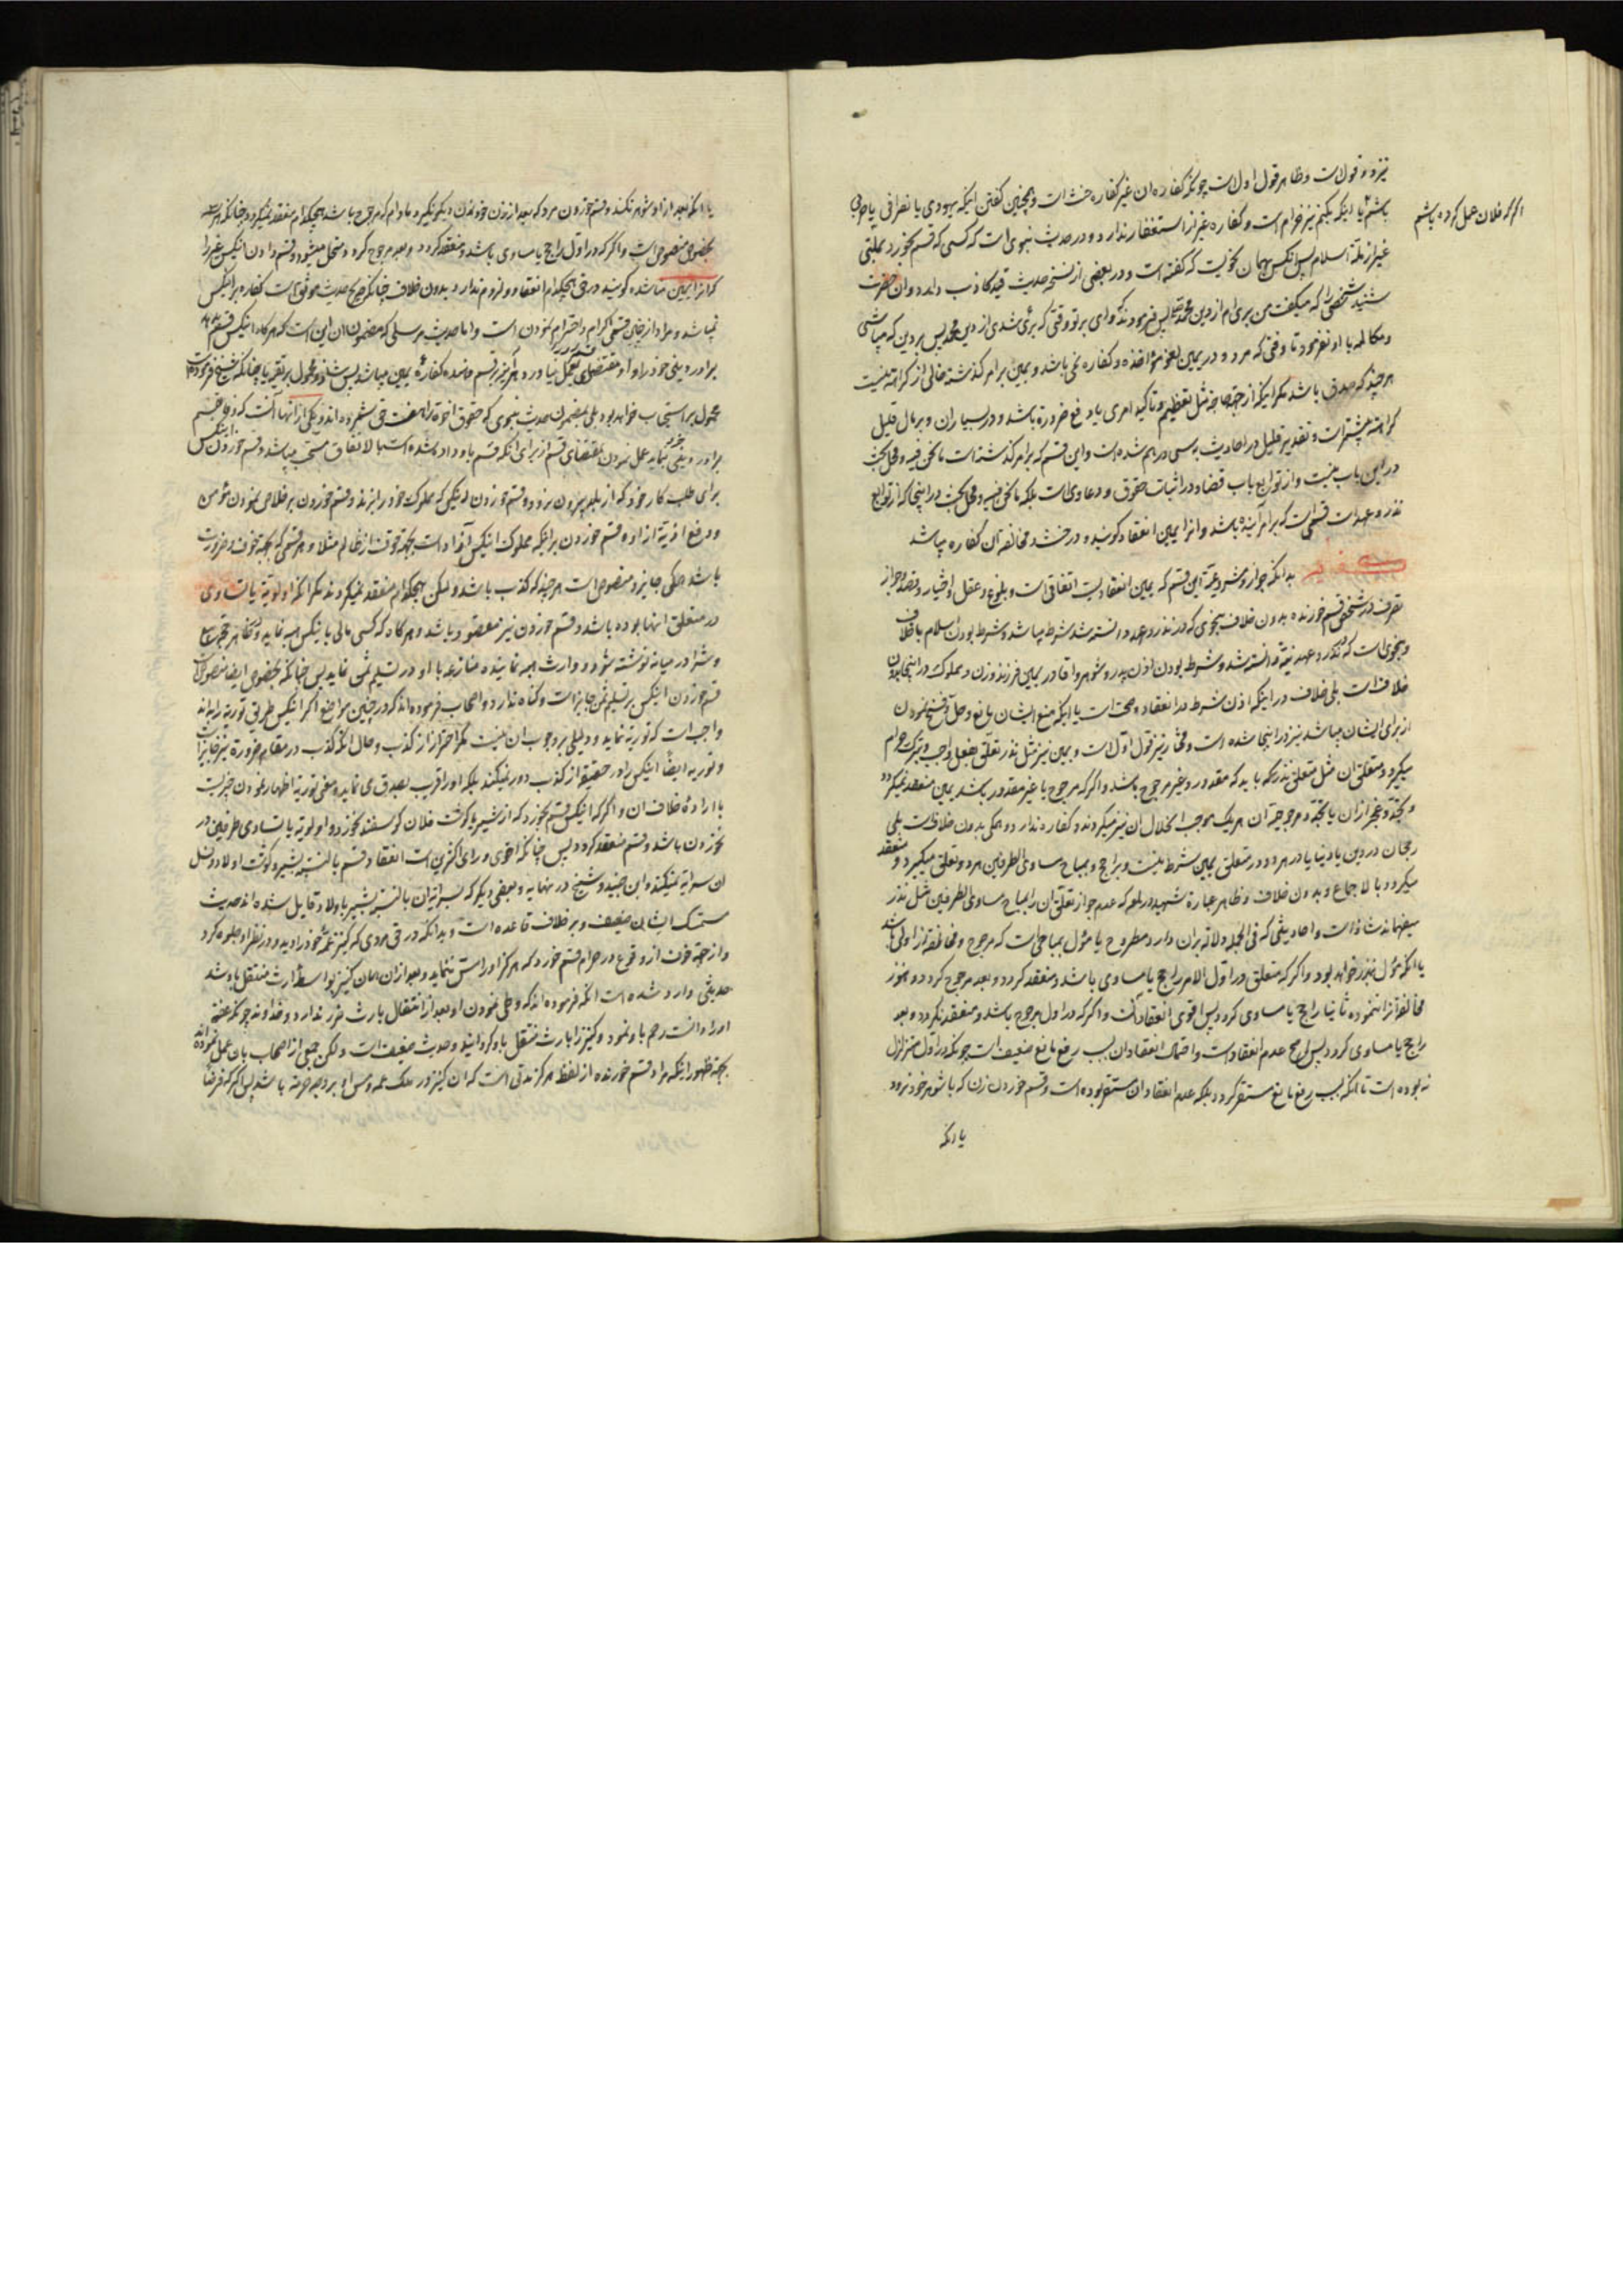 نیز دو قول است و ظاهر قول اول است چونکه کفاره ان غیر کفاره حنث است و همچنین گفتن اینکه یهودی یا نصرانی یا
اگر که فلان عمل کرده باشم
باشم یا اینکه بکنم نیز حرام است و کفاره غیر از استغفار ندارد و در حدیث نبوی است که کسی که قسم بخورد بملتی
غیر از ملة اسلام پس انکس همان نحو است که گفته است و در بعضی از نسخه حدیث قید کاذب دارد و ان حضرت
شنید شخصی را که میگفت من بری ام از دین محمد پس فرمودند که وای بر تو وقتی که بری شدی از دین محمد پس بر دین که میباشی
و مکالمه با او نفرمود تا وقتی که مرد و در یمین لغو مؤاخذه و کفاره نمی باشد و یمین بر امر گذشته خالی از کراهة نیست
هر چند که صدق باشد مکر اینکه از جهة حاجة مثل تعظیم و تاکید امری یا دفع ضرورة باشد و در بسیار ان و بر مال قلیل
کراهة بیشتر است و تقدیر قلیل در احادیث به سی درهم شده است و این قسم که بر امر گذشته است ما نحن فیه و محل بحث
در این باب نیست و از توابع باب قضاء در اثبات حقوق و دعاوی است بلکه ما نحن فیه و محل بحث در اینجا که از توابع
نذر و عهد است قسمی است که بر امر آینده باشد و انرا یمین انعقاد گویند و در حنث و مخالفة آن کفاره میباشد
بدانکه جواز و مشروعیة این قسم که یمین انعقاد است اتفاقی است و بلوغ و عقل و اختیار و قصد و جواز
تصرف در شخص قسم خورنده بدون خلاف بنحوی که در نذر و عهد دانسته شد شرط میباشد و شرط بودن اسلام با خلاف
و بنحوی است که در نذر و عهد دانسته شد و شرط بودن اذن پدر و شوهر و اقا در یمین فرزند و زن و مملوک در اینجا بدون
خلاف است بلی خلاف در اینکه اذن شرط در انعقاد و صحت است یا اینکه منع ایشان مانع و حل و فسخ نمودن
از برای ایشان میباشد نیز در اینجا شده است و مختار نیز قول اول است و یمین نیز مثل نذر تعلق بفعل واجب و بترک حرام
میگیرد و متعلق ان مثل متعلق نذر که باید که مقدور و غیر مرجوح باشد و اگر که مرجوح یا غیر مقدور باشد یمین منعقد نمیگردد
و تجدد عجز از ان یا تجدد مرجوحیة آن هر یک موجب انحلال ان نیز میگردند و کفاره ندارد و همکی بدون خلاف است بلی
رجحان در دین یا دنیا یا در هر دو در متعلق یمین شرط نیست و براجح و بمباح مساوی الطرفین هر دو تعلق میگیرد و منعقد
میگردد بالاجماع و بدون خلاف و ظاهر عبارة شهید در لمعه که عدم جواز تعلق ان را بمباح مساوی الطرفین مثل نذر
میفهماند شاذ است و احادیثی که فی الجمله دلالة بر ان دارد مطروح یا مؤول بمباحی است که مرجوح و مخالفة او اولی باشد
یا انکه مؤول بنذر خواهد بود و اگر که متعلق در اول الامر راجح یا مساوی باشد و منعقد گردد و بعد مرجوح گردد و هنوز
مخالفة انرا ننموده ثانیا راجح یا مساوی گردد پس اقوی انعقاد آنست و اگر که در اول مرجوح باشد و منعقد نگردد و بعد
راجح یا مساوی گردد پس اصح عدم انعقاد است و احتمال انعقاد ان بسبب رفع مانع ضعیف است چونکه در اول متزلزل
نه بوده است تا انکه بسبب رفع مانع مستقر گردد بلکه عدم انعقاد ان مستقر بوده است و قسم خوردن زن که با شوهر خود نرود
یا انکه
یا انکه بعد از او شوهر نکند و قسم خوردن مرد که بعد از زن خود زن دیگر نگیرد مادام که مرجوح باشد هیچکدام منعقد نمیگردد چنانکه هر سه
بخصوص منصوص است و اگر که در اول راجح یا مساوی باشد و منعقد گردد و بعد مرجوح گردد منحل میشود و قسم دادن انکس غیر را
که انرا یمین مناشده گویند در حق هیچکدام انعقاد و لزوم ندارد بدون خلاف چنانکه صریح حدیث موثق است کفاره بر انکس
نمیباشد و مراد از چنین قسمی اکرام و احترام نمودن است و اما حدیث مرسلی که مضمون ان این است که هر گاه انکس قسم دهد
برادر دینی خود را و او مقتضای بعمل نیاورد هر آینه بر قسم دهنده کفاره یمین میباشد پس شاذ و محمول بر تقیه یا چنانکه شیخ فرموده است
محمول بر استحباب خواهد بود بلی بمضمون حدیث نبوی که حقوق اخوة را هفت حق شمرده اند و یکی از انها آنست که
برادر دینی نماید عمل نمودن بمقتضای قسم از برای انکه قسم باو داده شده است بالاتفاق مستحب میباشد و قسم خوردن انکس
برای طلب کار خود که از بلد بیرون نرود و قسم خوردن که مملوک خود را بزند و قسم خوردن بر خلاص نمودن مؤمن
و دفع اذیة از او و قسم خوردن بر اینکه مملوک انکس آزاد است بجهة خوف از ظالم مثلا و هر قسمی که بجهة خوف و ضرورت
باشد همکی جایز و منصوص است هر چند که کذب باشد و لیکن هیچکدام منعقد نمیگردند مکر انکه اولویة یا تساوی
در متعلق انها بوده باشد و قسم خوردن نیز مقصود باشد و هر گاه که کسی مالی بانکس هبه نماید و بظاهر
و شرا در میانه نوشته شود و وارث هبه نماینده منازعه با او در تسلیم ثمن نماید پس چنانکه بخصوص ایضا منصوص است
قسم خوردن انکس بر تسلیم ثمن جایز است و گناه ندارد و اصحاب فرموده اند که در چنین مواضع اگر انکس طریق توریه را بداند
واجب است که توریه نماید و دلیلی بر وجوب ان نیست مکر احتراز از کذب و حال انکه کذب در مقام ضرورة نیز جایز است
و توریه ایضا انکس را در حقیقة از کذب دور نمیکند بلکه او را قریب بصدق می نماید و معنی توریه اظهار نمودن چیزیست
با اراده خلاف ان و اگر که انکس قسم بخورد که از شیر یا گوشت فلان گوسفند نخورد و اولویة یا تساوی طرفین در
نخوردن باشد و قسم منعقد گردد پس چنانکه اقوی و رای اکثر است انعقاد قسم بالنسبة بشیر و گوشت اولاد و نسل
ان سرایة نمیکند و ابن جنید و شیخ در نهایه و بعضی دیگر که بسرایة ان بالنسبة بشیر یا اولاد قایل شده اند حدیث
متمسک ایشان ضعیف و بر خلاف قاعده است و بدانکه در حق مردی که کنیز عمه خود را دید و در نظر او جلوه کرد
و از جهة خوف از وقوع در حرام قسم خورد که هرگز او را مس ننماید و بعد از ان همان کنیز بواسطه ارث منتقل باو شد
حدیثی وارد شده است انکه فرموده اند که وطی نمودن او بعد از انتقال بارث ضرر ندارد و خداوند چونکه عفة
او را دانست رحم باو نمود و کنیز را بارث منتقل باو گردانید و حدیث ضعیف است و لکن جمعی از اصحاب بان عمل نموده اند
بجهة ظهور اینکه مراد قسم خورنده از لفظ هرگز مدتی است که ان کنیز در ملک عمه و مس او بر وجه حرمة باشد پس اگر که فرضا